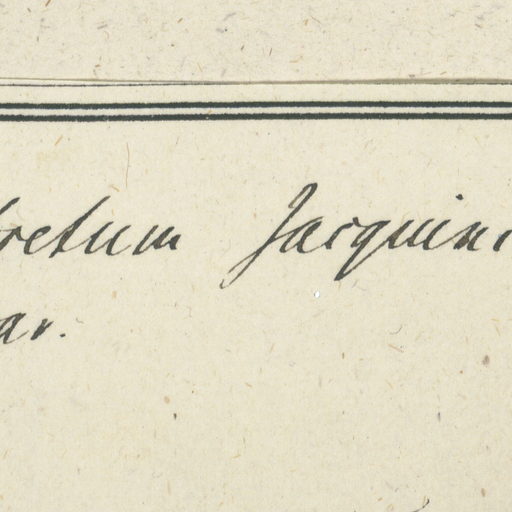 retum Jacquini
ar.